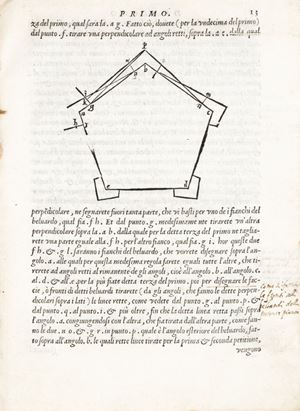 PRIMO. 13
za del primo, qual sara la . a g . Fatto ciò, douete (per la vndecima del primo)
dal punto .f. tirare vna perpendicolare ad angoli retti, sopra la . a c . dalla qual
p
b
a
c
e
d
perpēdicolare, ne segnarete fuori tanta parte, che vi basti per vno de i fianchi del
beluardo, qual sia . f h . Et dal punto . g . medesimamente tirarete vn'altra
perpendicolare sopra la . a b . dalla quale per la detta terza del primo ne taglia-
rete vna parte eguale alla . f h . per l'altro fianco, qual sia . g i . hor queste due
f h . & . g l . saranno i fianchi del beluardo, che vorrete disegnare sopra l'an-
golo . a . alle quali per questa medesima regola farete eguali tutte l'altre, che ti-
rerete ad angoli retti al rimanente de gli angoli, cioè all'angolo . b . all'angolo . c .
al . d . & all' . e . per la più fiate detta terza del primo. poi per disegnare le fac-
cie, ò fronti di detti beluardi tirarete (da gli angoli, che fanno le dette perpen-
dicolari sopra i lati) le linee rette, come vedete dal punto . g . al punto . p . &
dal punto . q . al punto . t . & più oltre, fin che la detta linea retta passi sopra
l'angolo . a . congiungendosi con l'altra, che fu tirata dall'altra parte, come fan-
no le due . n o . & . g r . in punto . p . quale è l'angolo esteriore del beluardo, fat-
to sopra all'angolo . b . le quali rette linee tirate per la prima & seconda petitione,
vengono